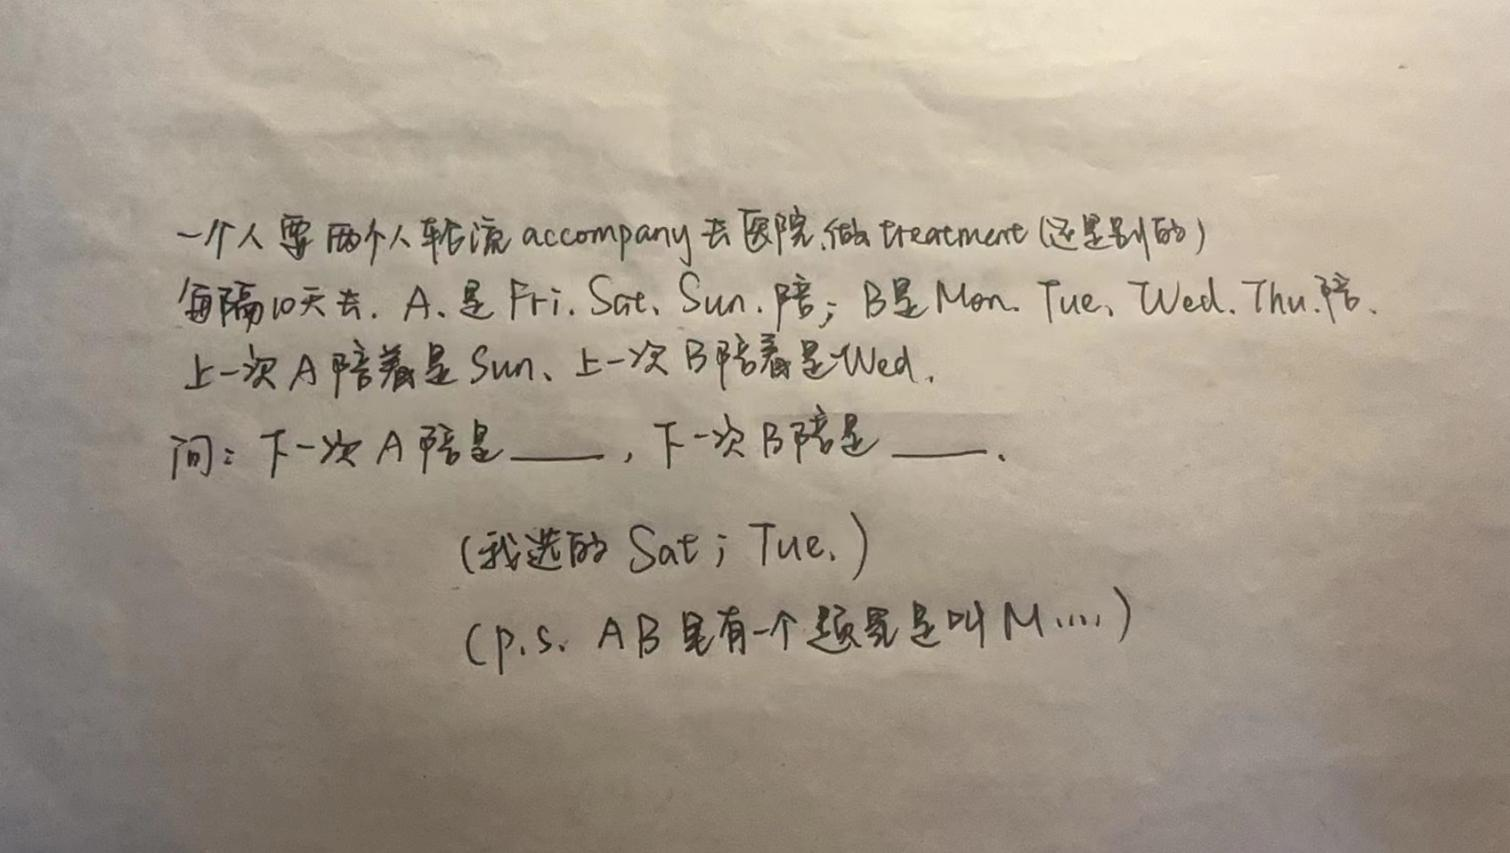 一个人要两个人轮流 accompany 去医院、做 treatment (还是别的)
每隔10天去. A、是 Fri. Sat、Sun. 陪; B是 Mon. Tue、Wed. Thu. 陪.
上一次 A 陪着是 Sun、上一次 B 陪着是 Wed.
问: 下一次 A 陪是 ____, 下一次 B 陪是 ____.
(我选的 Sat; Tue.)
(p.s. AB 是有一个 是叫 M....)